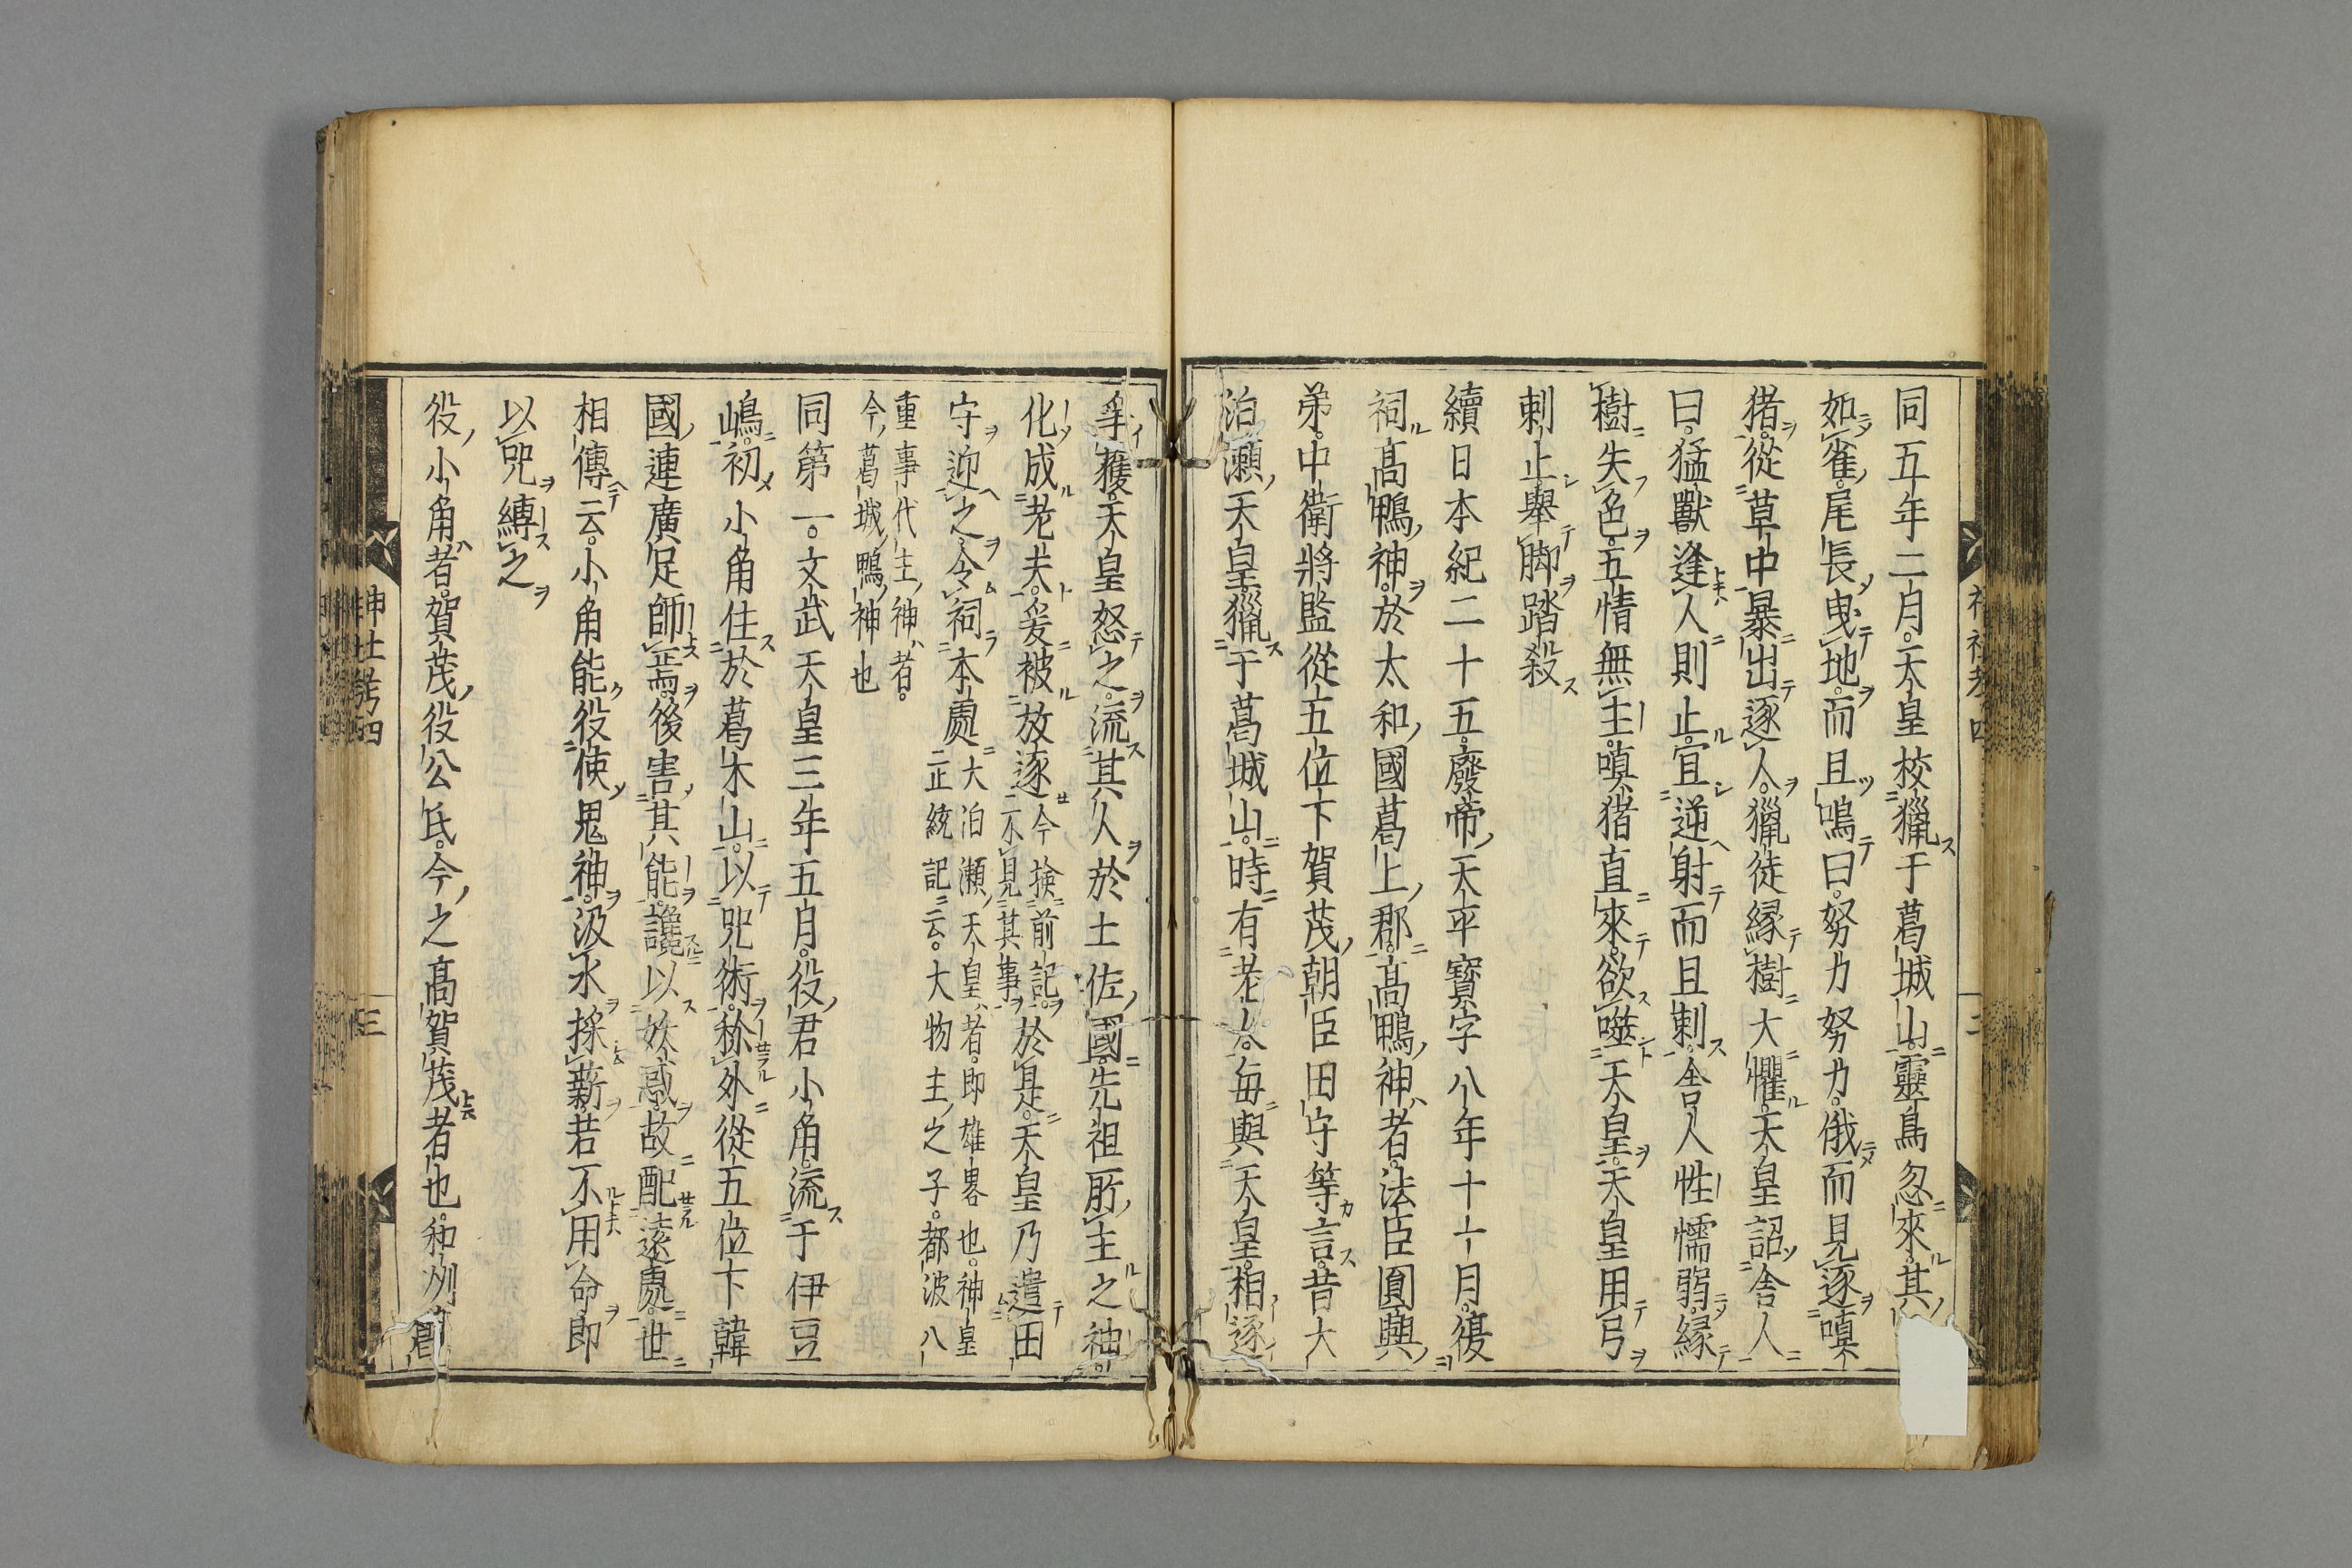 同五年二月。天皇校獵于葛城山。靈鳥忽來。其
如雀。尾長曳地。而且鳴曰。努力努力。俄而見逐嗔
猪。從草中暴出逐人。獵徒縁樹大懼。天皇詔舎人
曰。猛獸逢人則止。宜逆射而且刺。舎人性懦弱。縁
樹失色。五情無主。嗔猪直來。欲噬天皇。天皇用弓
刺止舉脚踏殺
續日本紀二十五。廢帝天平寳字八年十一月。復
祠高鴨神。於太和國葛上郡。高鴨神者。法臣圓興
弟。中衛將監從五位下賀茂朝臣田守等言。昔大
泊瀬天皇。獵于葛城山。時有老夫。毎與天皇。相逐
爭獲。天皇怒之。流其人於土佐國。先祖所主之神。
化成老夫。爰被放逐
今撿前記。
不見其事
於是。天皇乃遣田
守迎之。令祠本處
大泊瀬天皇者。即雄畧也。神皇
正統記云。大物主之子。都波八
重事代主神者。
今葛城鴨神也
同第一。文武天皇三年五月。役君小角。流于伊豆
嶋。初小角住於葛木山。以咒術稱。外從五位下韓
國連廣足師焉。後害其能。讒以妖惑。故配遠處。世
相傳云。小角能役使鬼神。汲水採薪。若不用命。即
以咒縛之
役小角者。賀茂役公氏。今之高賀茂者也。和州
神社考四
三